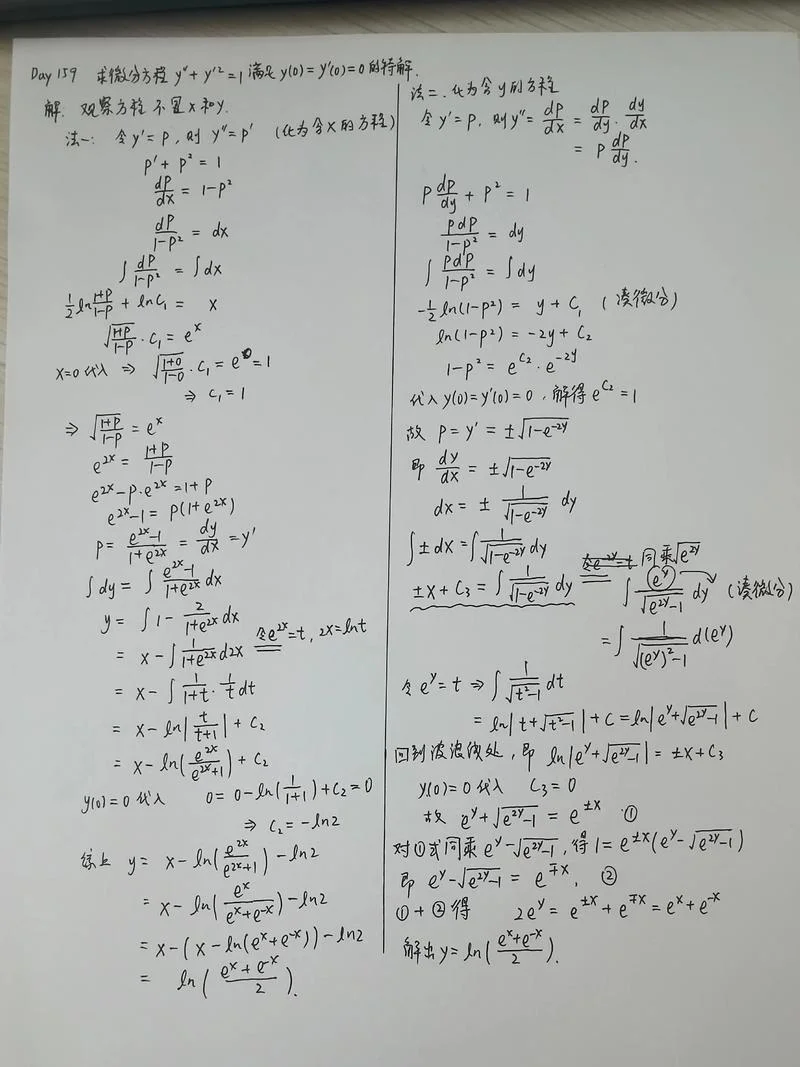 Day 159 求微分方程 y"+y'²=1 满足 y(0)=y'(0)=0 的特解.
解: 观察方程不显x和y.
法一: 令y'=p, 则 y"=p' (化为含x的方程)
p'+p²=1
dp/dx = 1-p²
dp/(1-p²) = dx
∫ dp/(1-p²) = ∫dx
½ln (1+p)/(1-p) + lnC₁ = x
√((1+p)/(1-p)) · C₁ = eˣ
x=0代入 ⇒ √((1+0)/(1-0)) · C₁ = e⁰ = 1
⇒ C₁=1
⇒ √((1+p)/(1-p)) = eˣ
e²ˣ = (1+p)/(1-p)
e²ˣ-p·e²ˣ=1+p
e²ˣ-1= p(1+e²ˣ)
p= (e²ˣ-1)/(1+e²ˣ) = dy/dx = y'
∫dy = ∫ (e²ˣ-1)/(1+e²ˣ) dx
y = ∫ 1- 2/(1+e²ˣ) dx
= x-∫ 1/(1+e²ˣ) d2x 令e²ˣ=t, 2x=lnt
= x-∫ 1/(1+t) · 1/t dt
= x-ln|t/(t+1)| + C₂
= x-ln(e²ˣ/(e²ˣ+1)) + C₂
y(0)=0 代入 0=0-ln(1/(1+1))+C₂=0
⇒ C₂=-ln2
综上 y= x-ln(e²ˣ/(e²ˣ+1)) -ln2
= x-ln(eˣ/(eˣ+e⁻ˣ)) -ln2
= x-(x-ln(eˣ+e⁻ˣ))-ln2
= ln((eˣ+e⁻ˣ)/2).
法二. 化为含y的方程
令y'=p, 则y"= dp/dx = dp/dy · dy/dx
= p dp/dy.
p dp/dy + p² = 1
pdp/(1-p²) = dy
∫ pdp/(1-p²) = ∫dy
-½ln(1-p²) = y+C₁ (凑微分)
ln(1-p²) = -2y+C₂
1-p² = e^C₂ · e^(-2y)
代入 y(0)=y'(0)=0, 解得 e^C₂=1
故 p=y'= ±√(1-e^(-2y))
即 dy/dx = ±√(1-e^(-2y))
dx = ± 1/√(1-e^(-2y)) dy
∫±dx =∫ 1/√(1-e^(-2y)) dy
±x+C₃ = ∫ 1/√(1-e^(-2y)) dy 令e^(-2y)=t 同乘√(e^(2y)) ∫ e^y/√(e^(2y)-1) dy (凑微分)
= ∫ 1/√((e^y)²-1) d(e^y)
令 e^y=t ⇒ ∫ 1/√(t²-1) dt
= ln|t+√(t²-1)| + C = ln|e^y+√(e^(2y)-1)| + C
回到波浪线处, 即 ln|e^y+√(e^(2y)-1)| = ±x+C₃
y(0)=0代入 C₃=0
故 e^y+√(e^(2y)-1) = e^(±x) ①
对①式同乘 e^y-√(e^(2y)-1), 得 1= e^(±x)(e^y-√(e^(2y)-1))
即 e^y-√(e^(2y)-1) = e^(∓x). ②
①+②得 2e^y = e^(±x)+e^(∓x)=eˣ+e⁻ˣ
解出y=ln((eˣ+e⁻ˣ)/2).